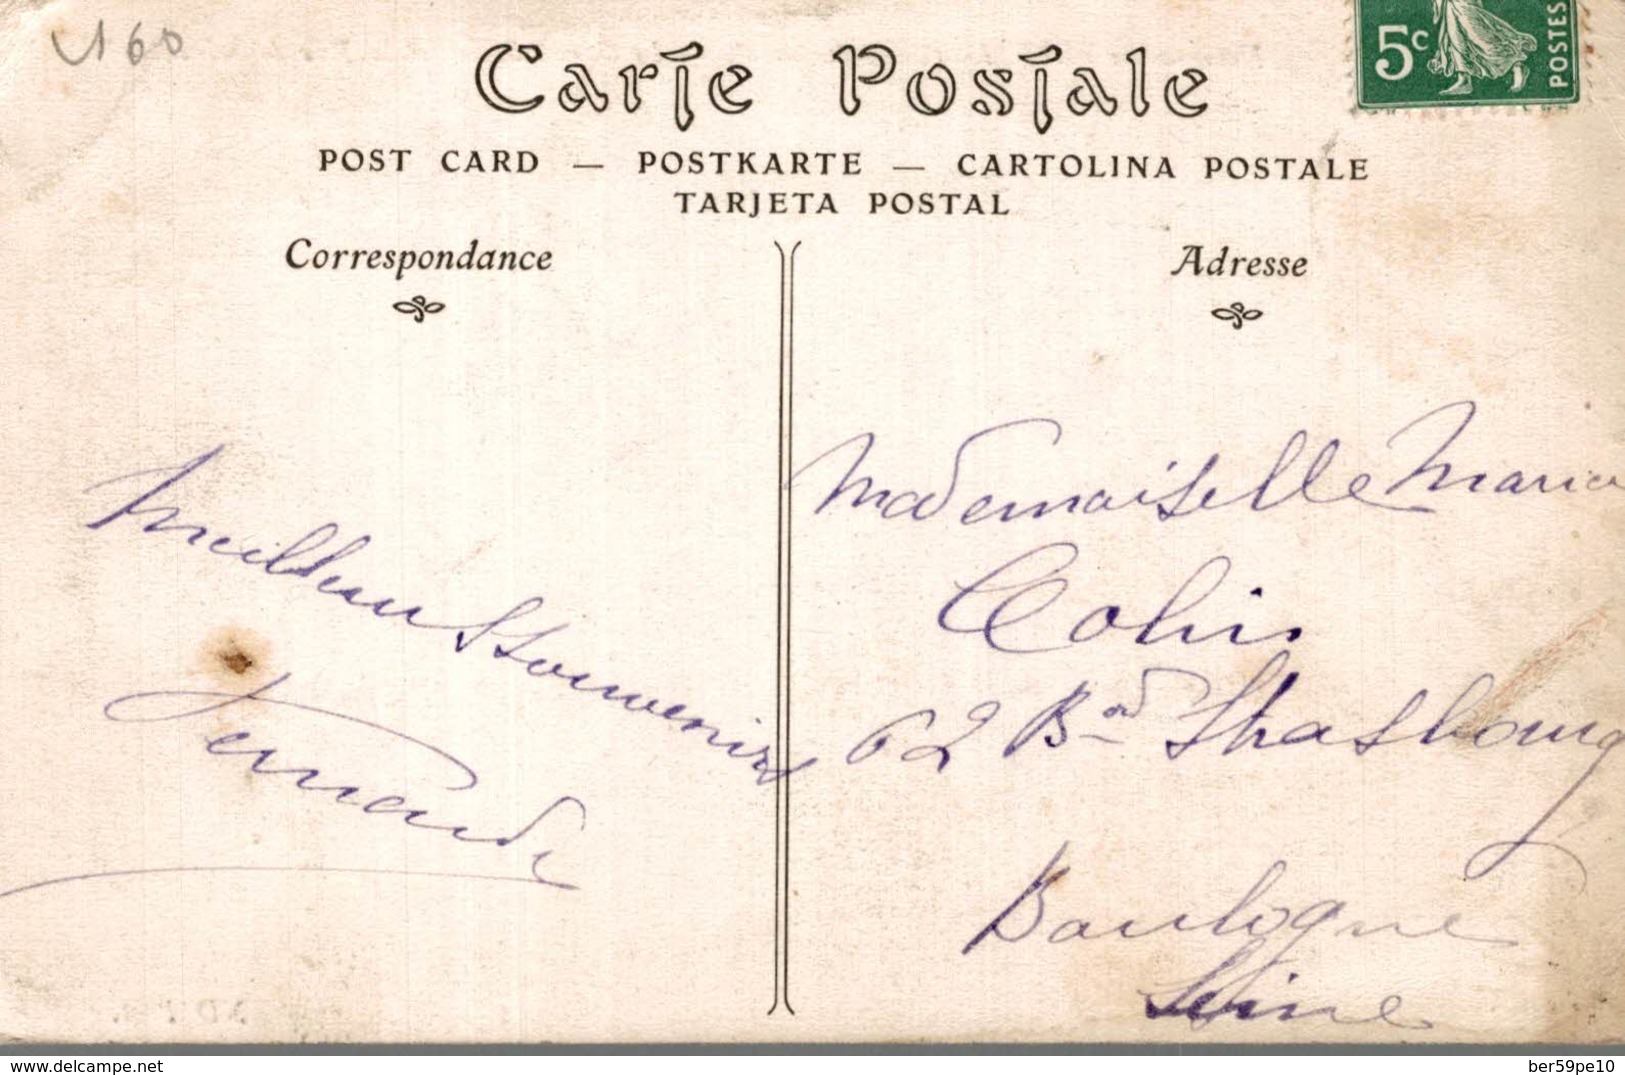 160
5c
POSTES
Carte Postale
POST CARD — POSTKARTE — CARTOLINA POSTALE
TARJETA POSTAL
Correspondance
Adresse
Meilleurs Souvenirs
Fernande
Mademoiselle Maria
Colin
62 Bd Strasbourg
Boulogne
Seine
delcampe.net
ber59pe10